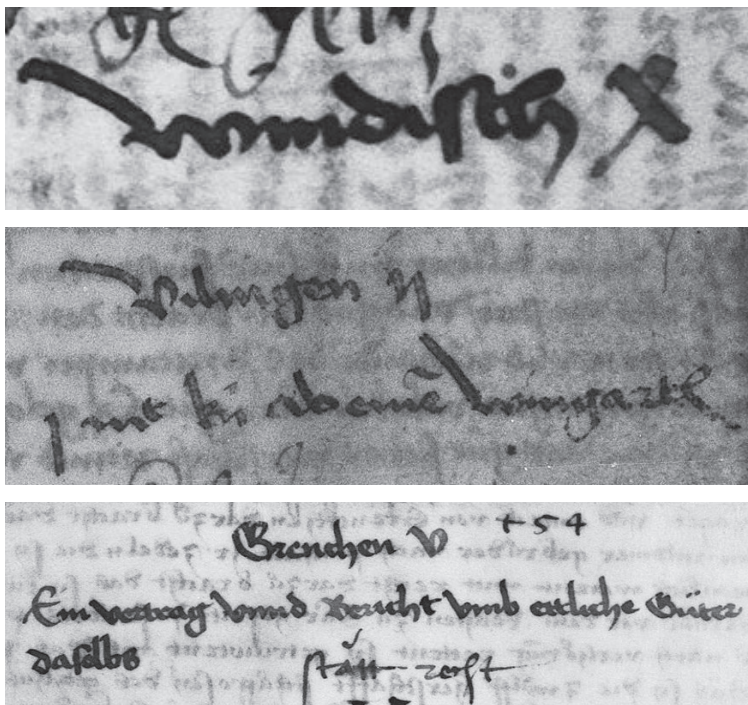 Windisch X
Vilingen ij
j mt ki ab eine wingartte
Grenchen V + 54
Ein vertrag vnnd Bericht vmb ettliche Güter
daselbs statt recht